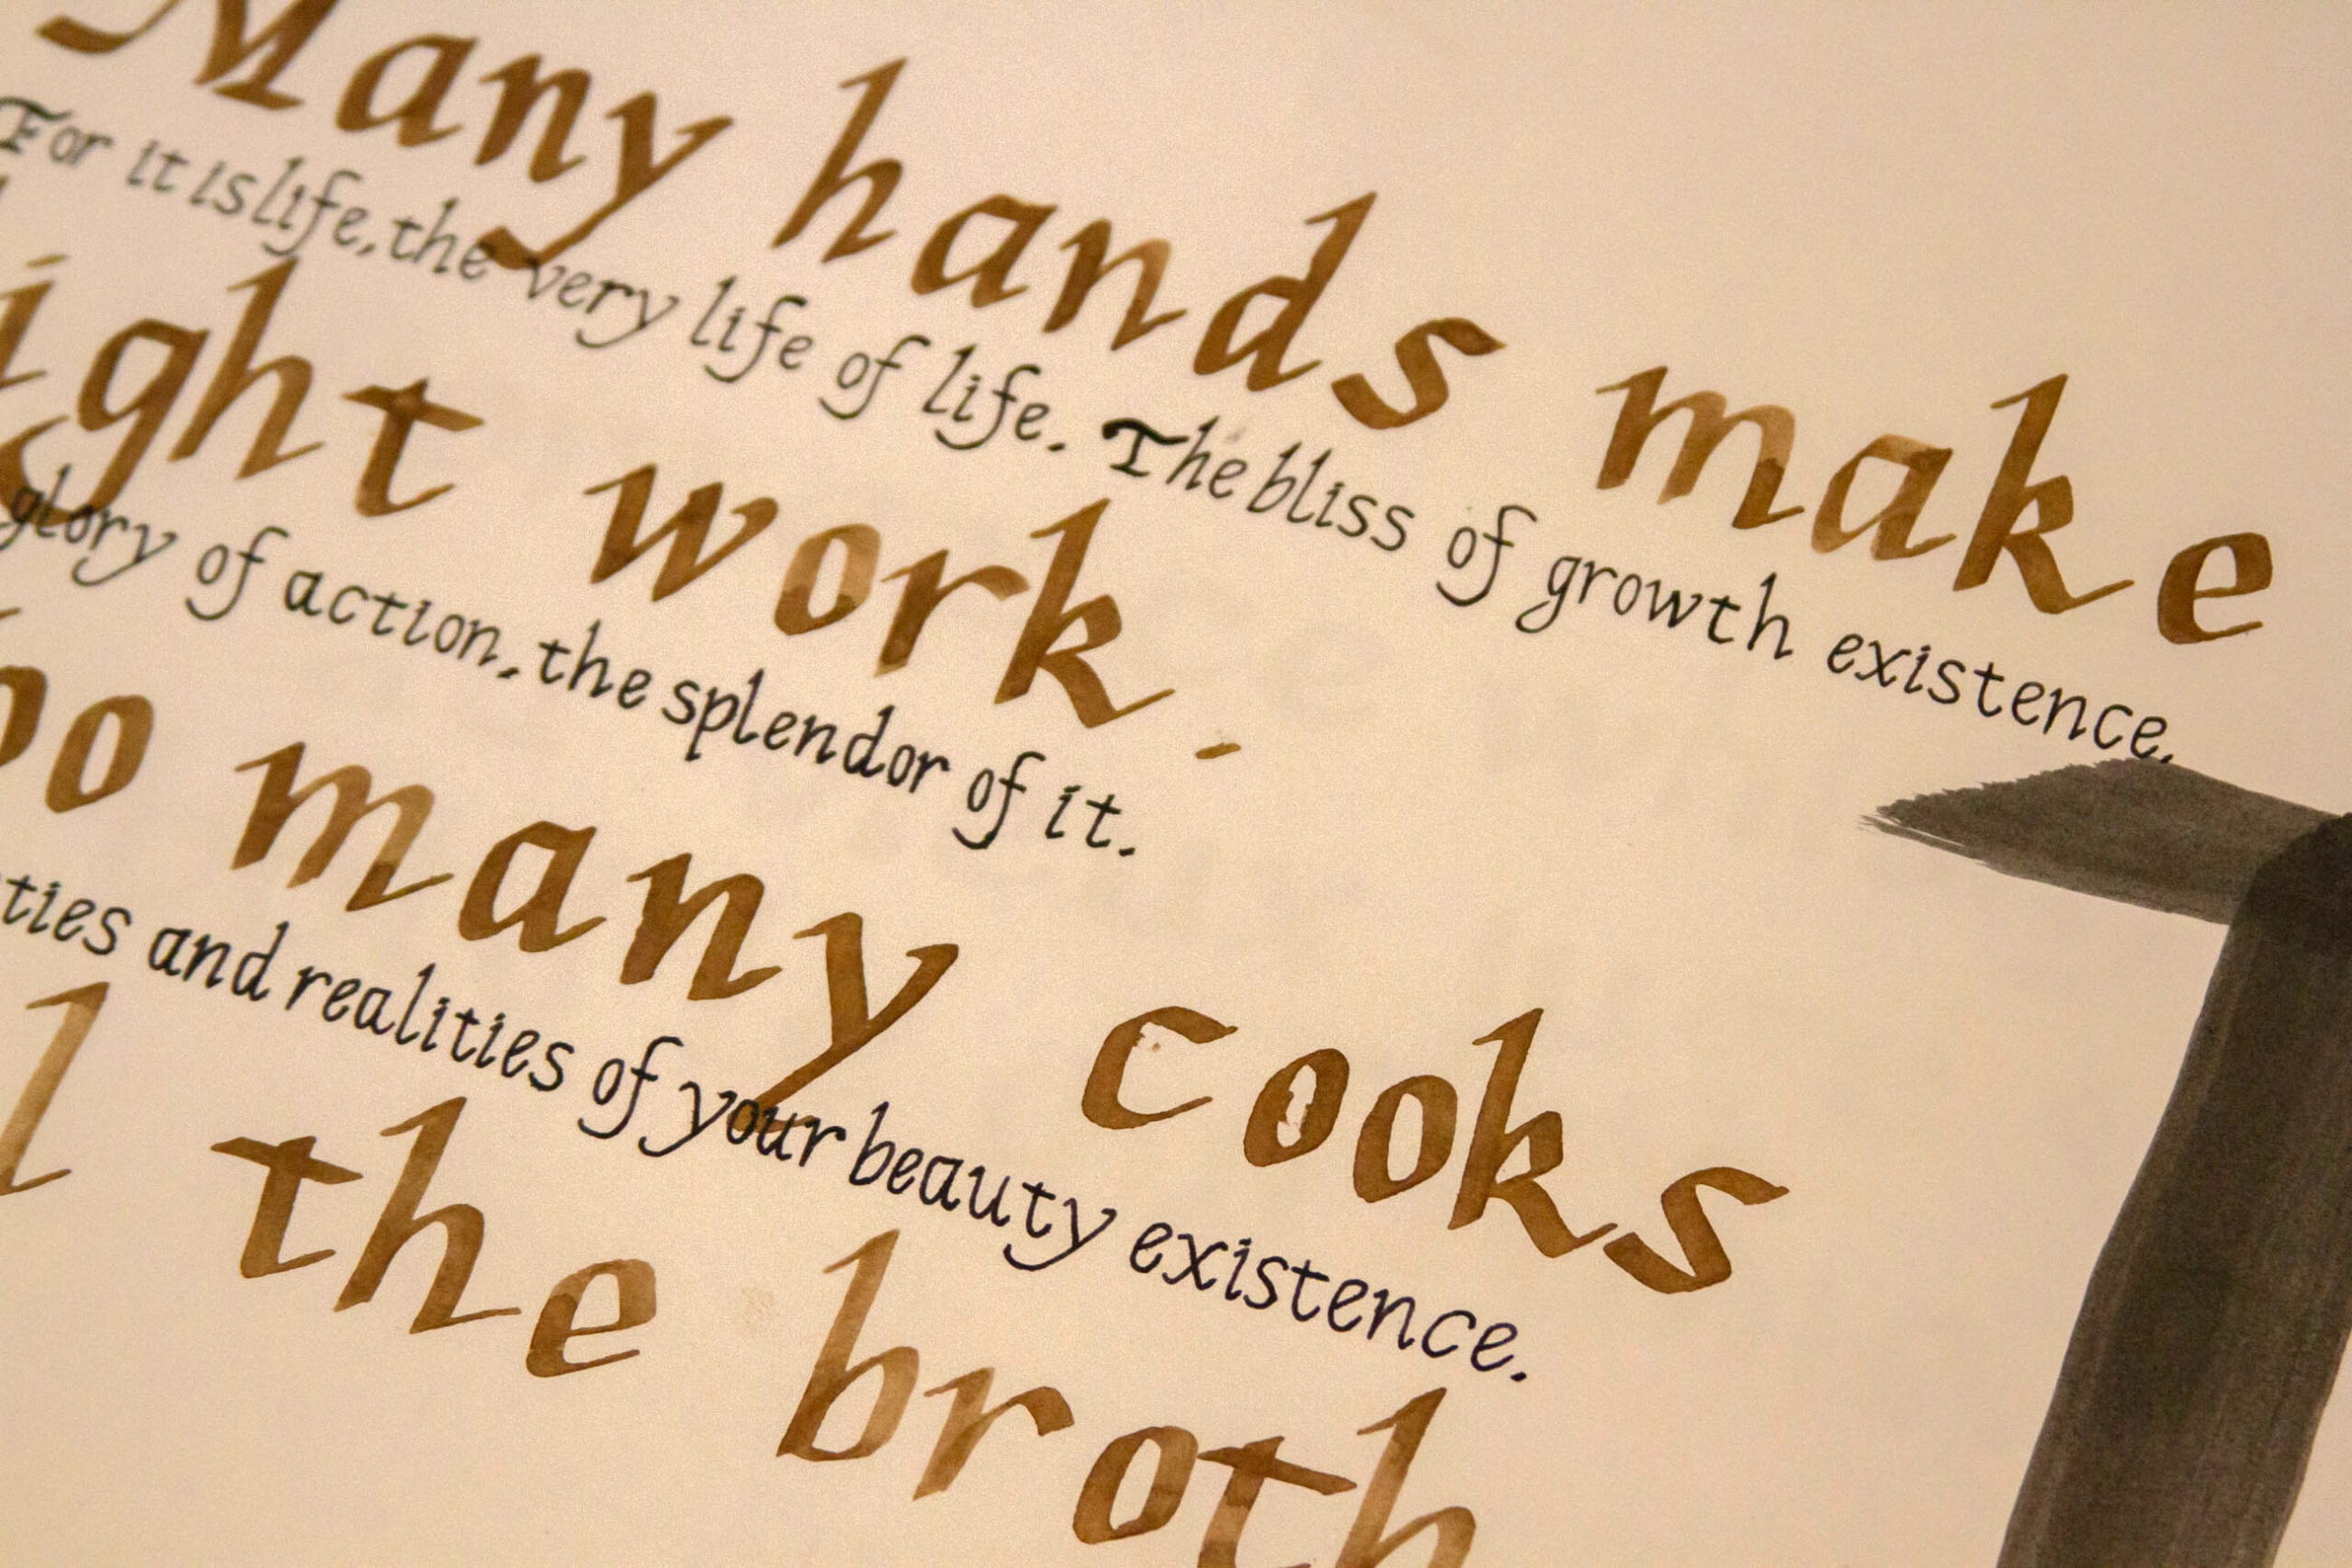 Many hands make
For it is life, the very life of life. The bliss of growth existence.
ight work.
glory of action, the splendor of it.
oo many cooks
ties and realities of your beauty existence.
l the broth